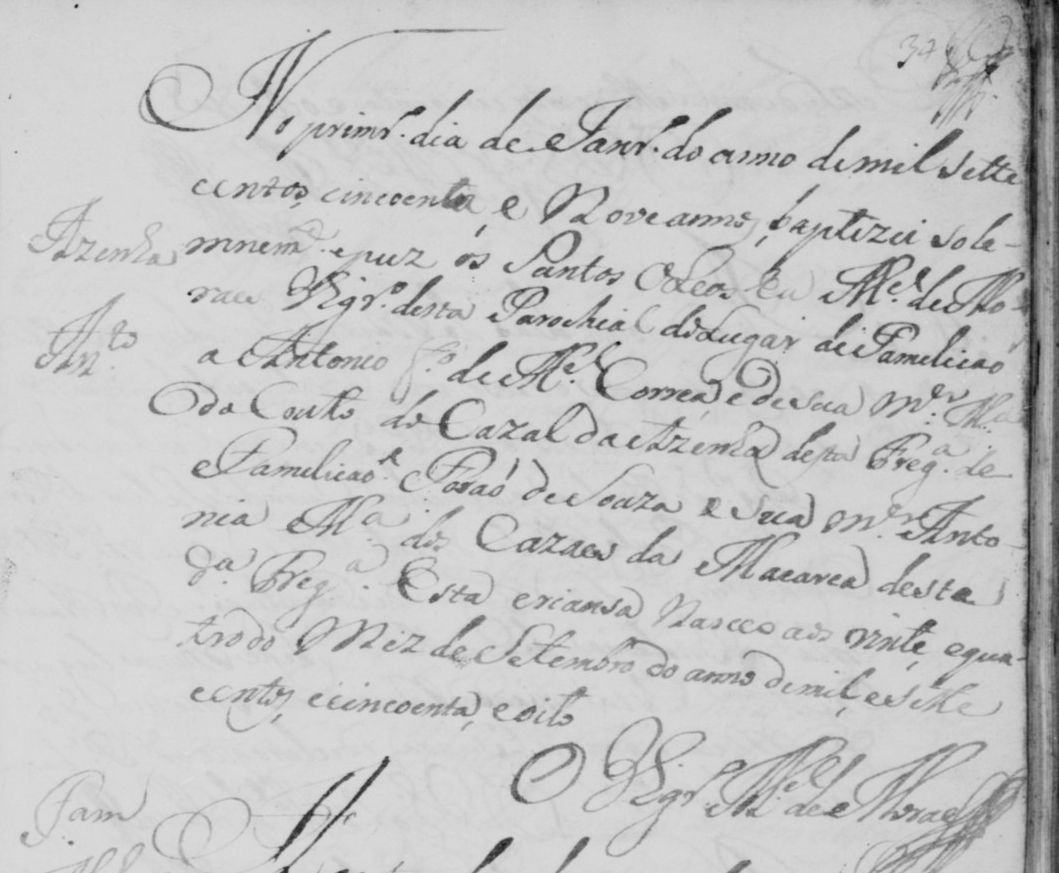 34
No primr.º dia de Janr.º do anno de mil sette
centos, cincoenta, e Nove annos, baptizei sola-
Azenha
mnem.te e puz os Santos Oleos Eu M.el de Mo-
raes Vigr.º desta Parochial do Lugar de Famelicaõ
Ant.º
a Antonio f.º de M.el Correa, e de sua m.er M.a
do Couto do Cazal da Azenha desta Freg.a de
Famelicaõ. Foraõ de Souza e sua m.er Anto-
nia M.a dos Cazaes da Macarca desta
d.a Freg.a. Esta criansa Nasceo aos vinte, e qua-
tro do Mez de Setembro do anno de mil, e sette
centos, e cincoenta, e oito
O Vigr.º M.el de Moraes
Fam